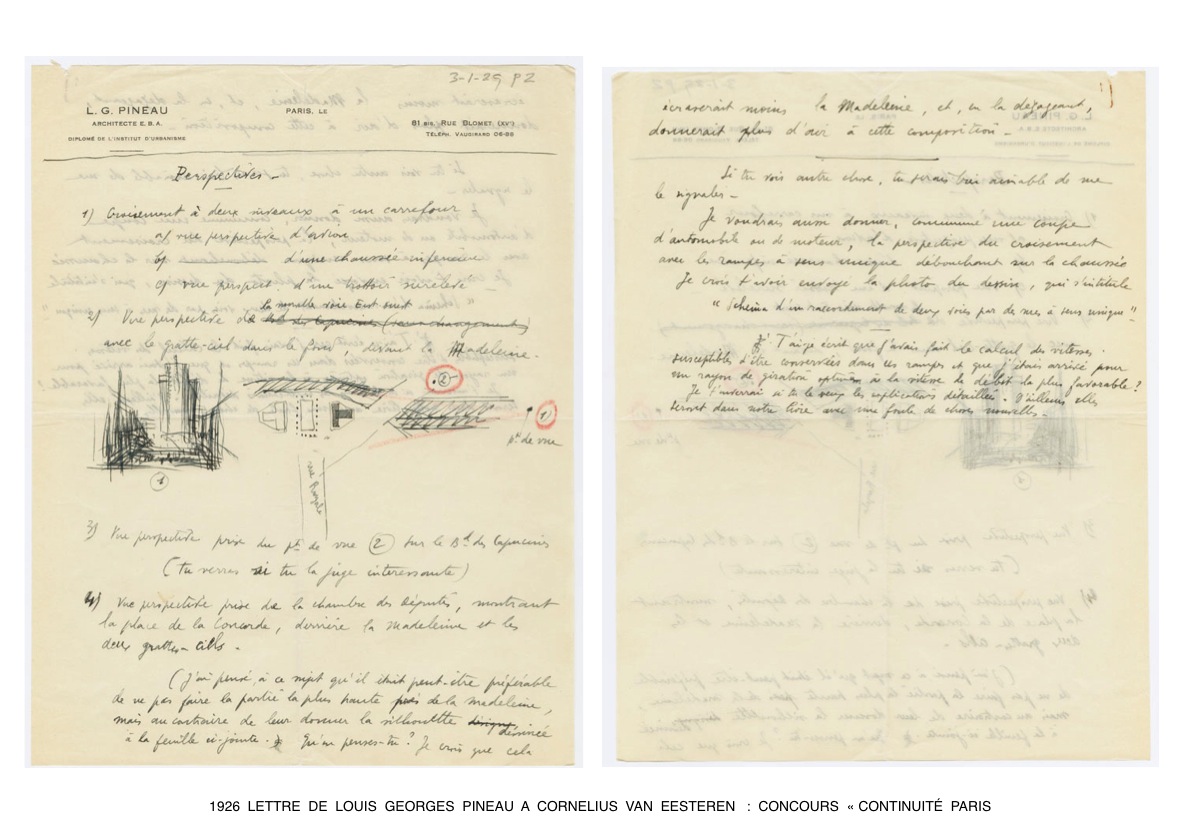 3-1-29 P2
L. G. PINEAU
ARCHITECTE E.B.A.
DIPLOMÉ DE L'INSTITUT D'URBANISME
PARIS, LE
81 BIS, RUE BLOMET (XV°)
TÉLÉPH. VAUGIRARD 06-88
Perspectives -
1) Croisement à deux niveaux à un carrefour
a) vue perspective d'avion
b) d'une chaussée inférieure
c) vue perspect d'un trottoir surélevé
la nouvelle voie Est ouest
2) Vue perspective de Bd des Capucines (sans changements)
avec le gratte-ciel dans le fond, devant la Madeleine.
2
1
pt de vue
rue Royale
3) Vue perspective prise du pt de vue 2 sur le Bd des Capucines
(tu verras si tu la juge interessante)
4) Vue perspective prise de la chambre des Députés, montrant
la place de la Concorde, derrière la Madeleine et les
deux grattes-ciels.
(J'ai pensé, à ce sujet qu'il était peut-être préférable
de ne pas faire la partie la plus haute près de la madeleine,
mais au contraire de leur donner la silhouette dessinée
à la feuille ci-jointe. Qu'en penses-tu? Je crois que cela
écraserait moins la Madeleine, et, en la dégageant,
donnerait plus d'air à cette composition -
Si tu vois autre chose, tu serais bien aimable de me
le signaler -
Je voudrais aussi donner, comme une coupe
d'automobile ou de moteur, la perspective du croisement
avec les rampes à sens unique débouchant sur la chaussée
Je crois t'avoir envoyé la photo du dessin, qui s'intitule
" Schéma d'un raccordement de deux voies par de rue, à sens unique "
T'ai-je écrit que j'avais fait le calcul des vitesses
susceptibles d'être conservées dans ces rampes et que j'étais arrivé pour
un rayon de giration optimum à la vitesse de débit la plus favorable?
Je t'enverrai si tu le veux les explications détaillées - D'ailleurs elles
seront dans notre livre avec une foule de choses nouvelles -
1926 LETTRE DE LOUIS GEORGES PINEAU A CORNELIUS VAN EESTEREN : CONCOURS « CONTINUITÉ PARIS